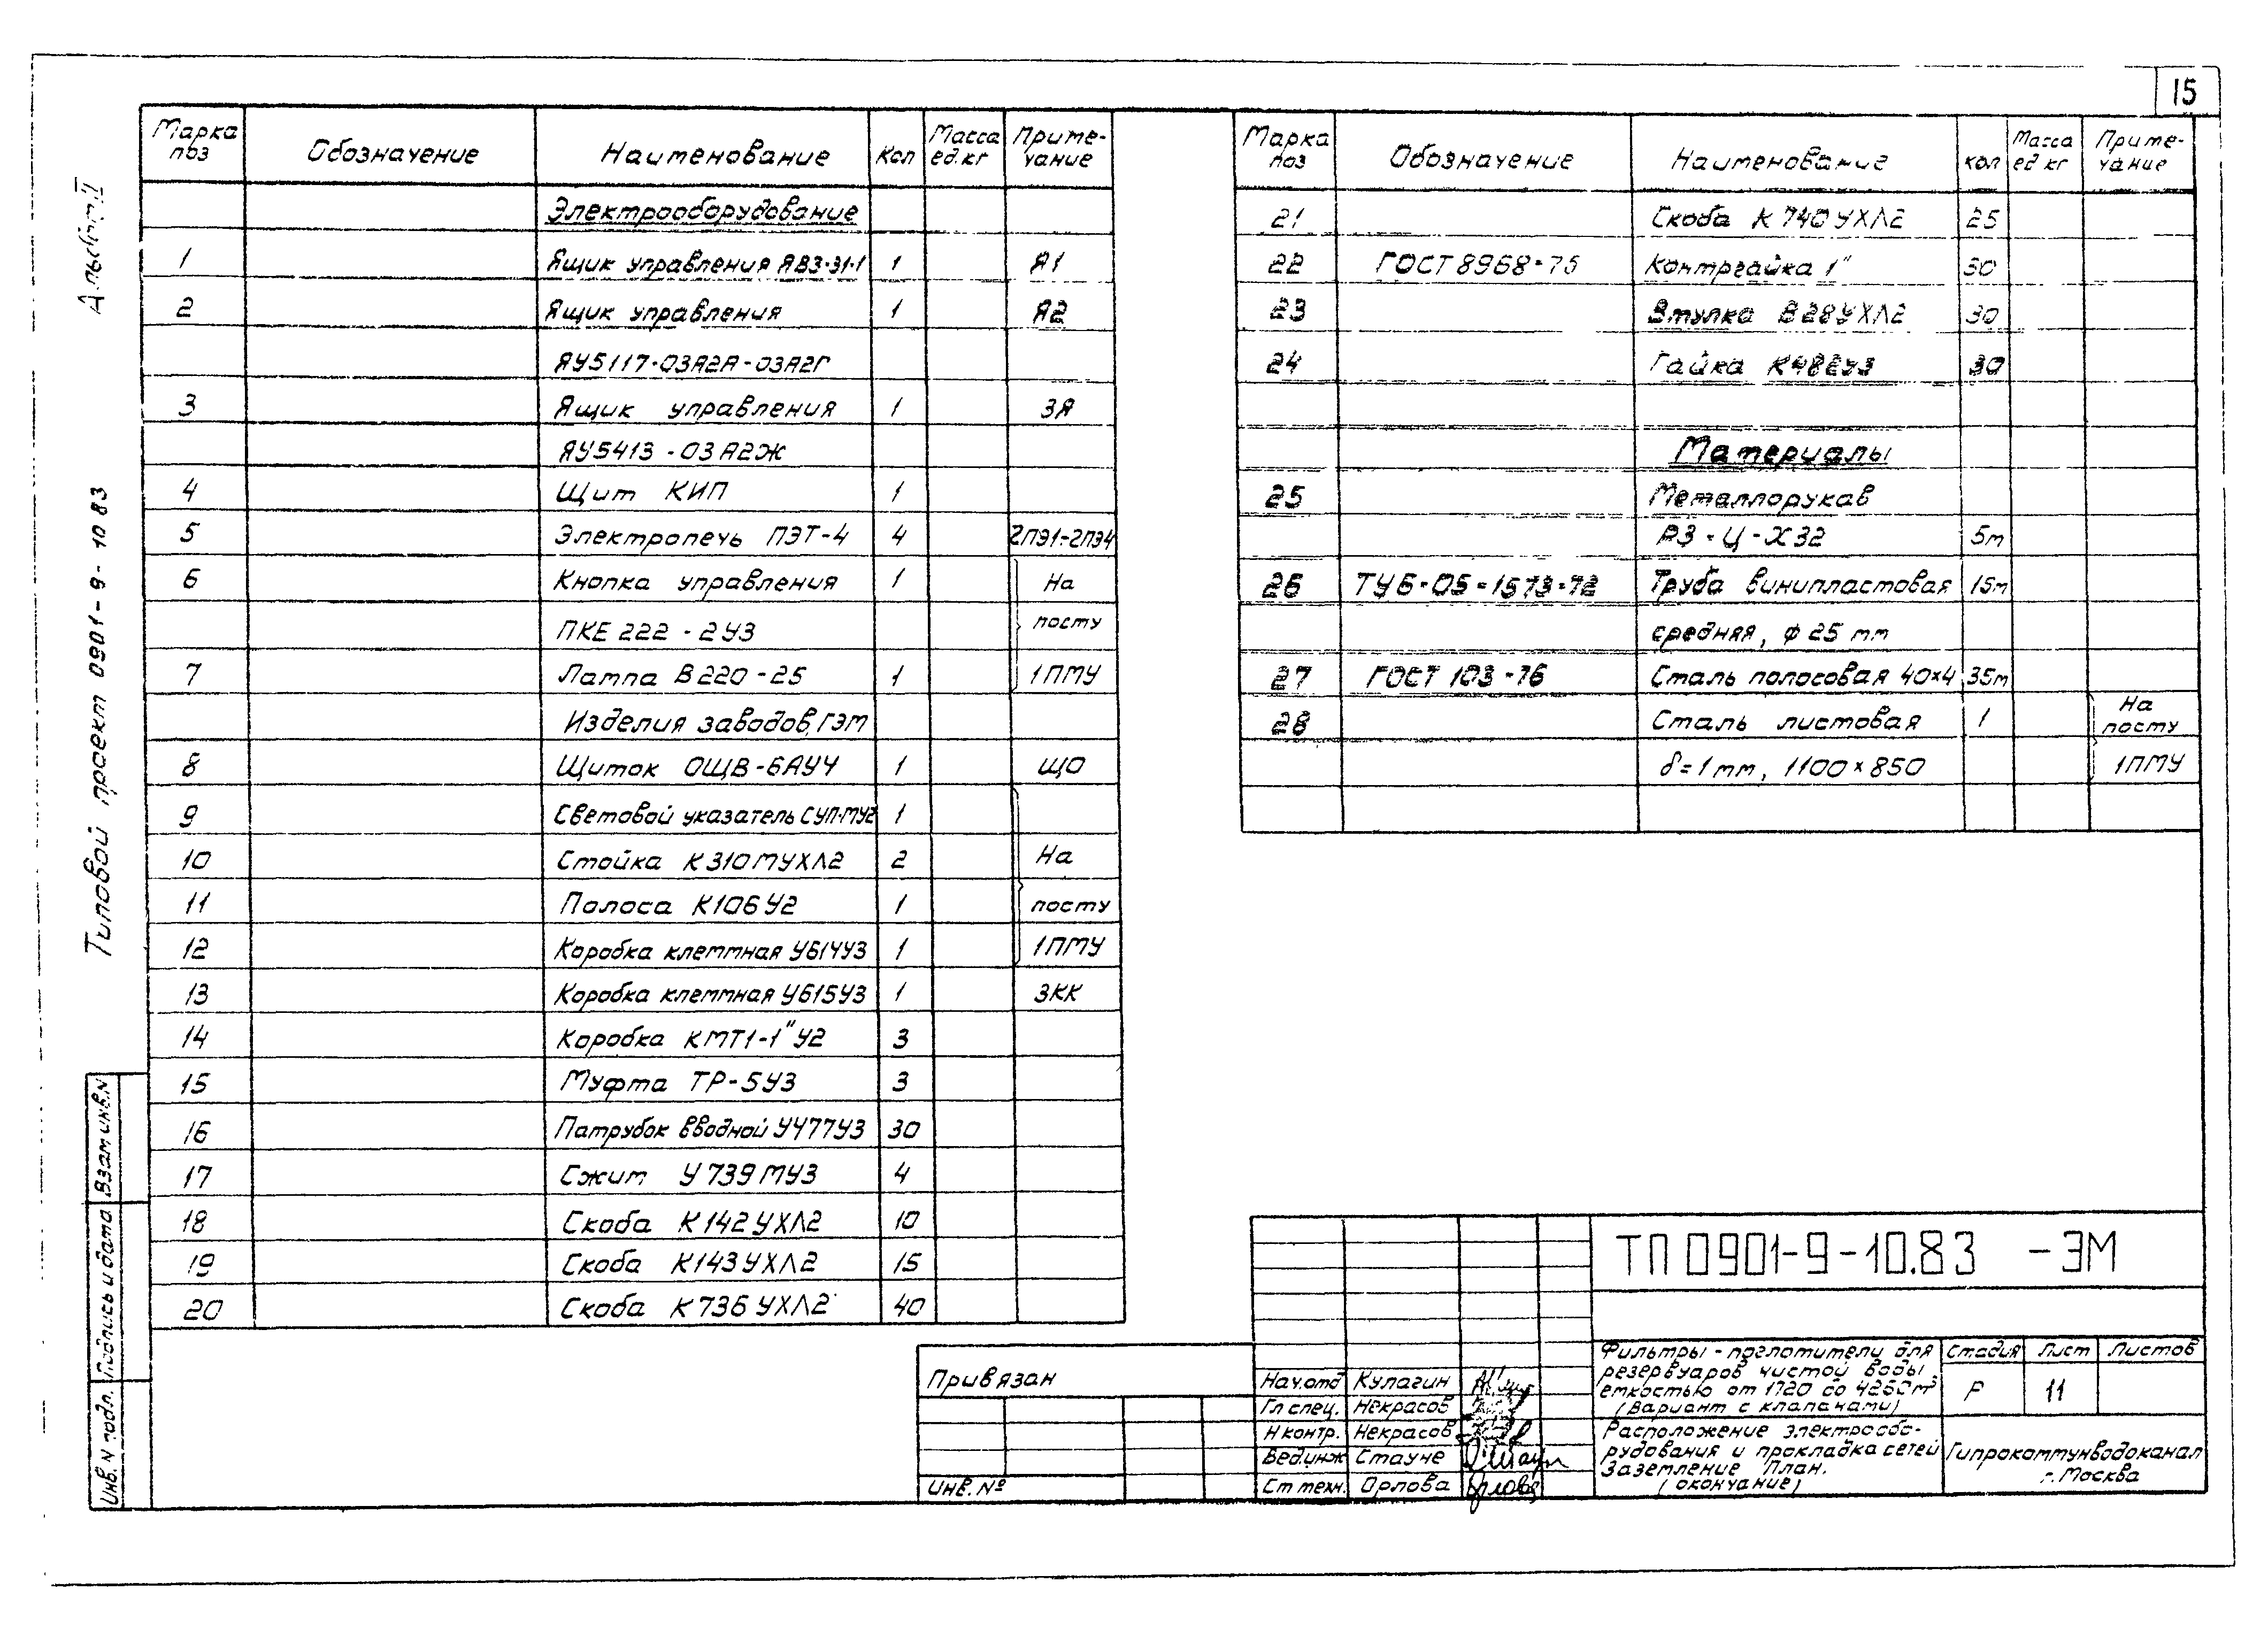 15
Альбом II
Типовой проект 0901-9-10 83
Марка поз | Обозначение | Наименование | Кол | Масса ед. кг | Приме-чание
Электрооборудование
1 | Ящик управления ЯВЗ-31-1 | 1 | Я1
2 | Ящик управления | 1 | Я2
ЯУ5117-03А2А-03А2Г
3 | Ящик управления | 1 | 3Я
ЯУ5413-03А2Ж
4 | Щит КИП | 1
5 | Электропечь ПЭТ-4 | 4 | 2ПЭ1-2ПЭ4
6 | Кнопка управления | 1 | На
ПКЕ 222-2У3 | посту
7 | Лампа В220-25 | 1 | 1ПМУ
Изделия заводов ГЭМ
8 | Щиток ОЩВ-6АУ4 | 1 | ЩО
9 | Световой указатель СУП-МУ2 | 1
10 | Стойка К310МУХЛ2 | 2 | На
11 | Полоса К106У2 | 1 | посту
12 | Коробка клеммная У614У3 | 1 | 1ПМУ
13 | Коробка клеммная У615У3 | 1 | 3КК
14 | Коробка КМТ1-1"У2 | 3
15 | Муфта ТР-5У3 | 3
16 | Патрубок вводной У477У3 | 30
17 | Сжим У739МУ3 | 4
18 | Скоба К142УХЛ2 | 10
19 | Скоба К143УХЛ2 | 15
20 | Скоба К736УХЛ2 | 40
Марка поз | Обозначение | Наименование | кол | Масса ед кг | Приме-чание
21 | Скоба К740УХЛ2 | 25
22 | ГОСТ 8968-75 | Контргайка 1" | 30
23 | Втулка В28УХЛ2 | 30
24 | Гайка К482У3 | 30
Материалы
25 | Металлорукав
РЗ-Ц-Х32 | 5м
26 | ТУ6-05-1573-72 | Труба винипластовая | 15м
средняя, ф 25 мм
27 | ГОСТ 103-76 | Сталь полосовая 40×4 | 35м
28 | Сталь листовая | 1 | На посту
δ=1мм, 1100×850 | 1ПМУ
Взам инв. N
Подпись и дата
Инв. N подл.
Привязан
Инв. №
ТП 0901-9-10.83 -ЭМ
Нач. отд Кулагин
Гл спец. Некрасов
Н контр. Некрасов
Вед. инж Стауне
Ст техн. Орлова
Фильтры-поглотители для
резервуаров чистой воды
емкостью от 1720 до 4260м³
(вариант с клапанами)
Стадия | Лист | Листов
Р | 11
Расположение электрообо-
рудования и прокладка сетей
Заземление План.
(окончание)
Гипрокоммунводоканал
г. Москва